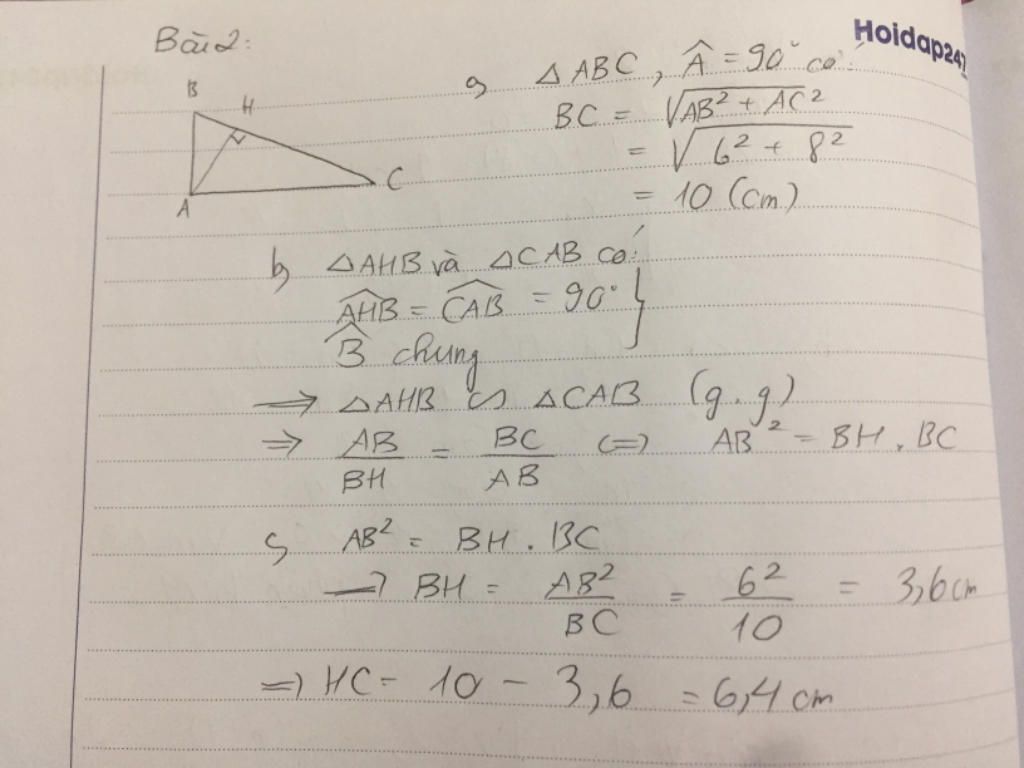 Bài 2:
Hoidap247
B
H
A
C
a) △ABC, Â = 90° có:
BC = √(AB² + AC²)
= √(6² + 8²)
= 10 (cm)
b) △AHB và △CAB có:
AHB = CAB = 90°
B̂ chung
⇒ △AHB ∽ △CAB (g.g)
⇒ AB/BH = BC/AB ⇔ AB² = BH . BC
c) AB² = BH . BC
→ BH = AB²/BC = 6²/10 = 3,6 cm
⇒ HC = 10 - 3,6 = 6,4 cm